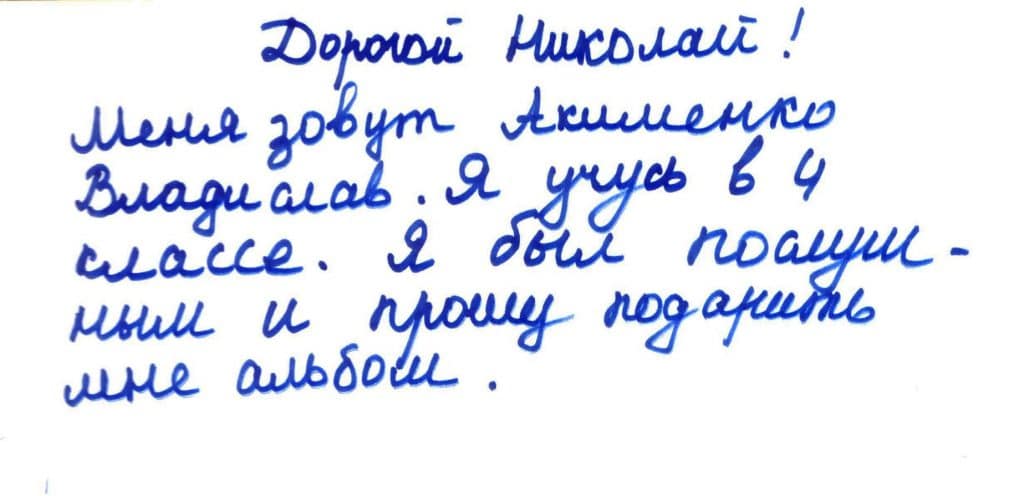 Дорогой Николай!
Меня зовут Акименко
Владислав. Я учусь в 4
классе. Я был послуш-
ным и прошу подарить
мне альбом.